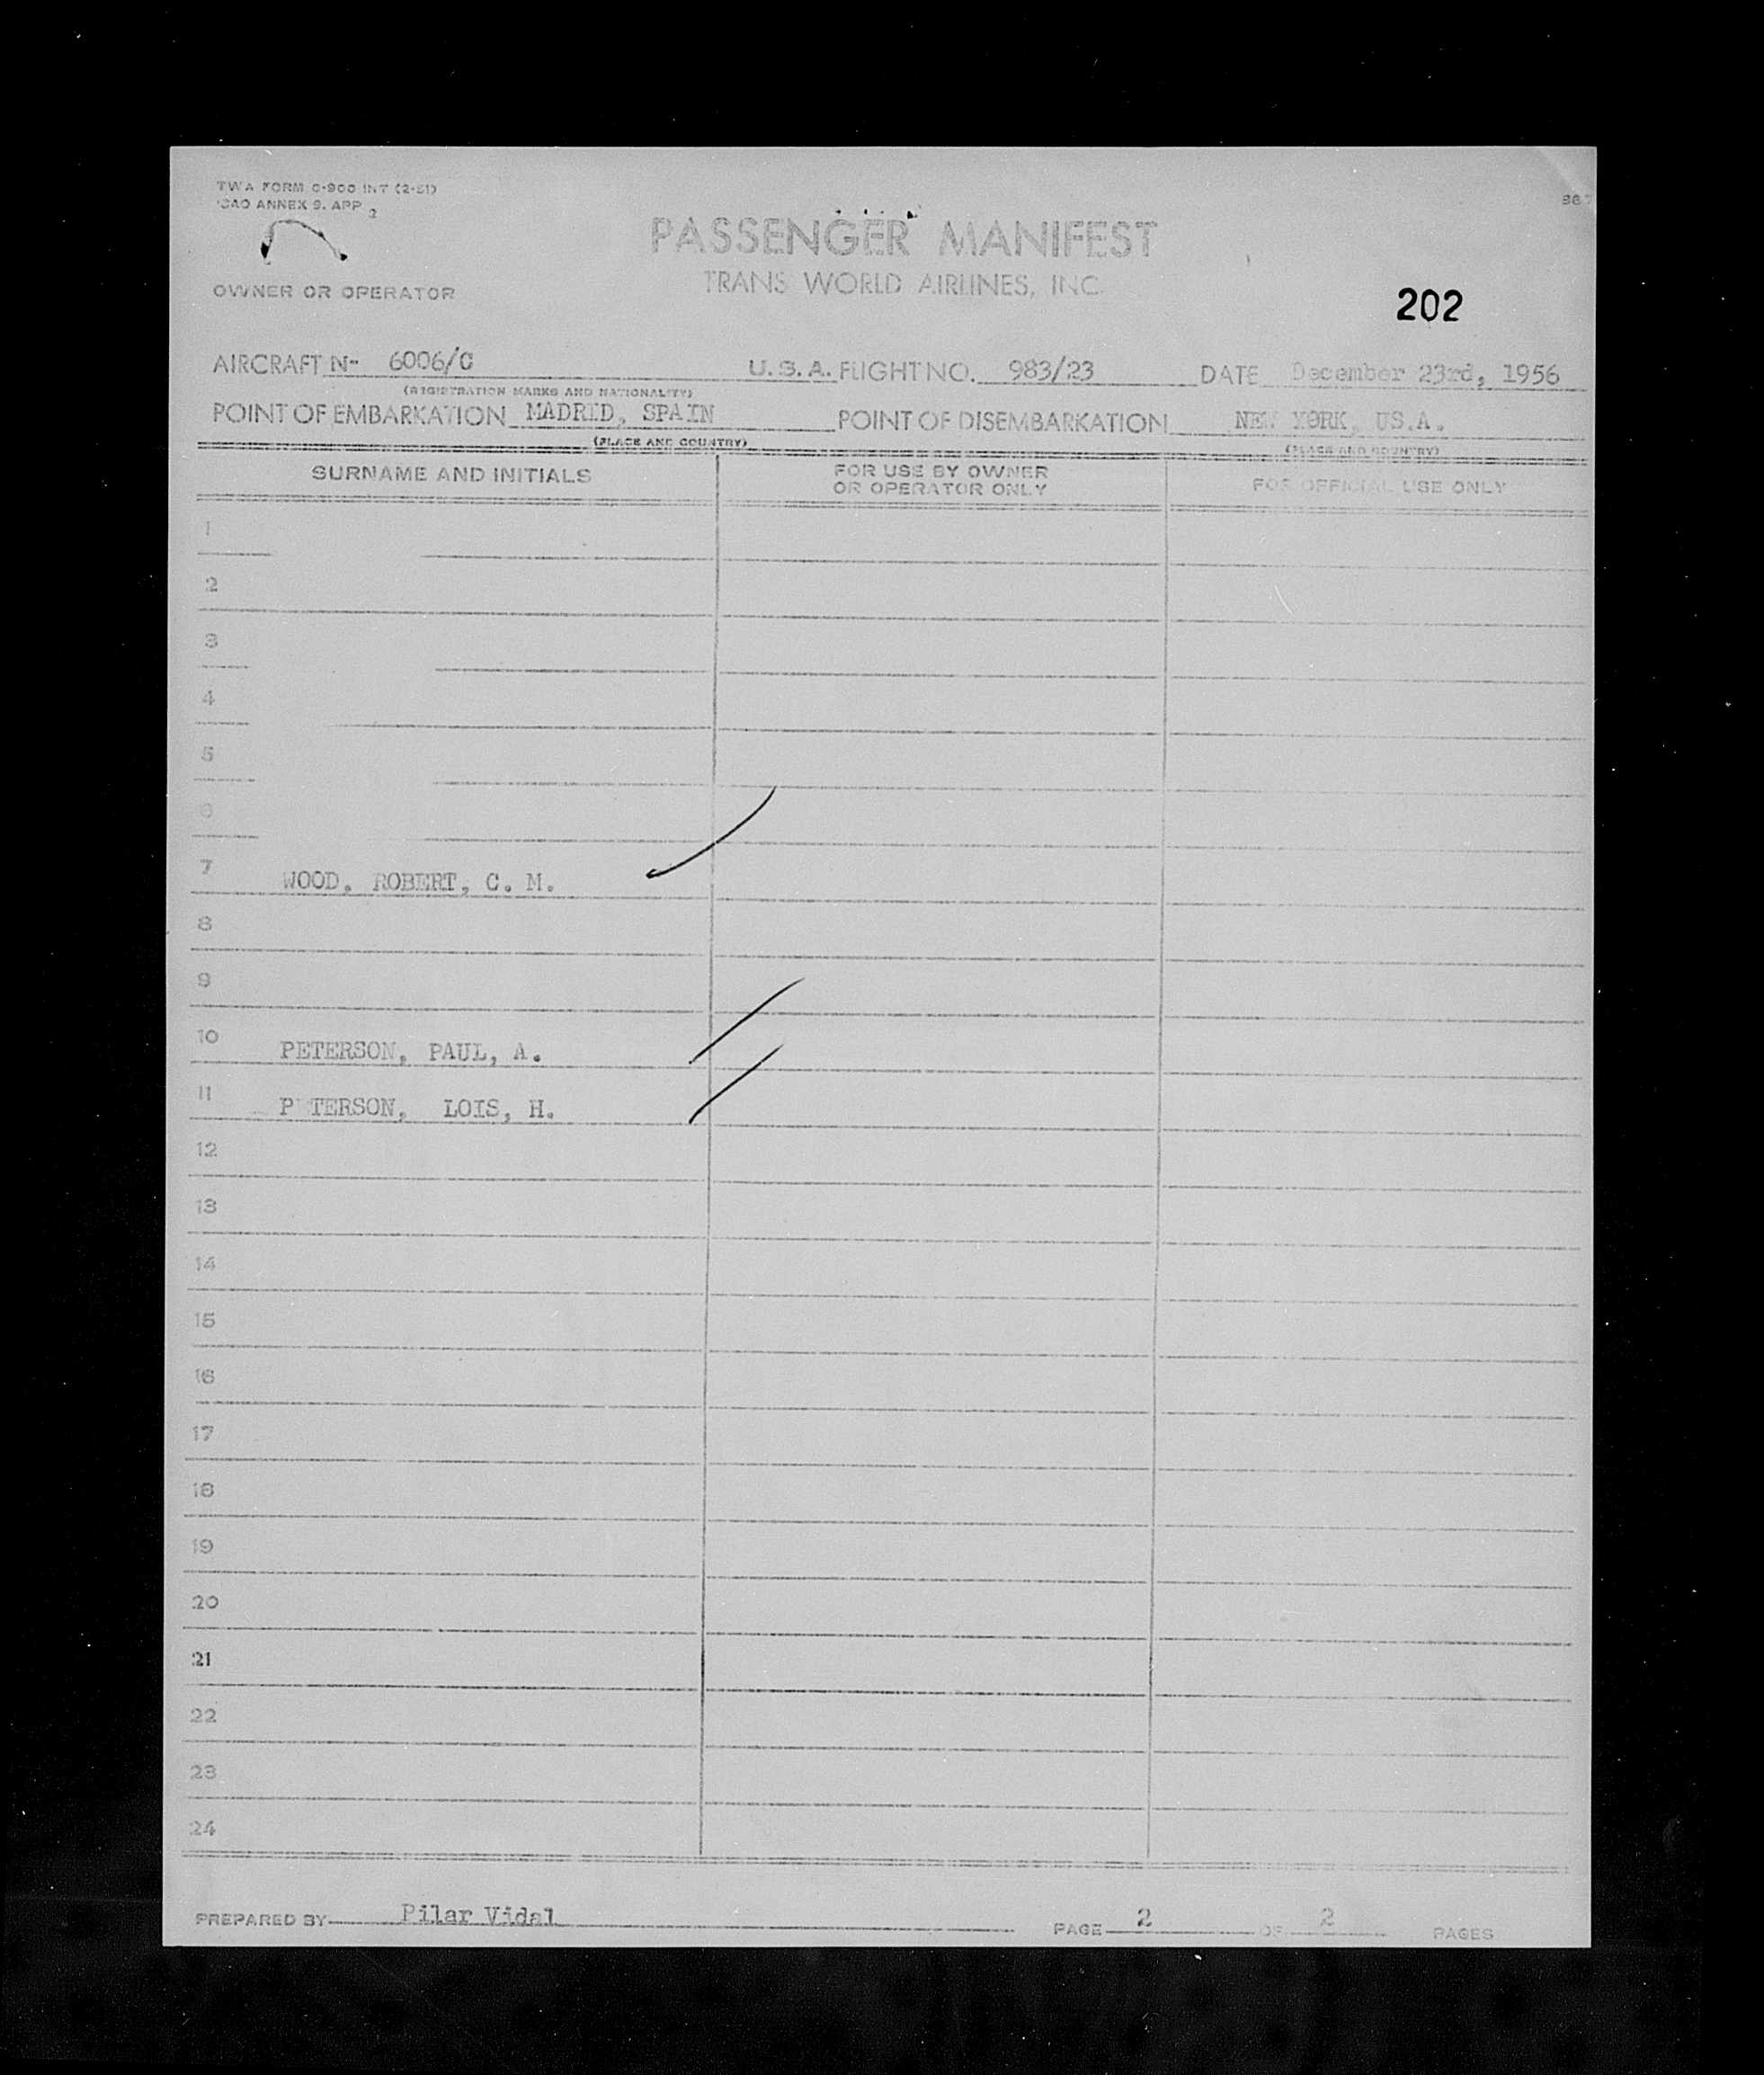 TWA FORM C-900 INT (2-51)
ICAO ANNEX 9. APP 2
PASSENGER MANIFEST
TRANS WORLD AIRLINES, INC.
OWNER OR OPERATOR
202
AIRCRAFT Nº 6006/C U.S.A. FLIGHT NO. 983/23 DATE December 23rd, 1956
(REGISTRATION MARKS AND NATIONALITY)
POINT OF EMBARKATION MADRID, SPAIN POINT OF DISEMBARKATION NEW YORK, US.A.
(PLACE AND COUNTRY) (PLACE AND COUNTRY)
SURNAME AND INITIALS FOR USE BY OWNER OR OPERATOR ONLY FOR OFFICIAL USE ONLY
1
2
3
4
5
6
7 WOOD. ROBERT, C. M.
8
9
10 PETERSON, PAUL, A.
11 PETERSON, LOIS, H.
12
13
14
15
16
17
18
19
20
21
22
23
24
PREPARED BY Pilar Vidal PAGE 2 OF 2 PAGES